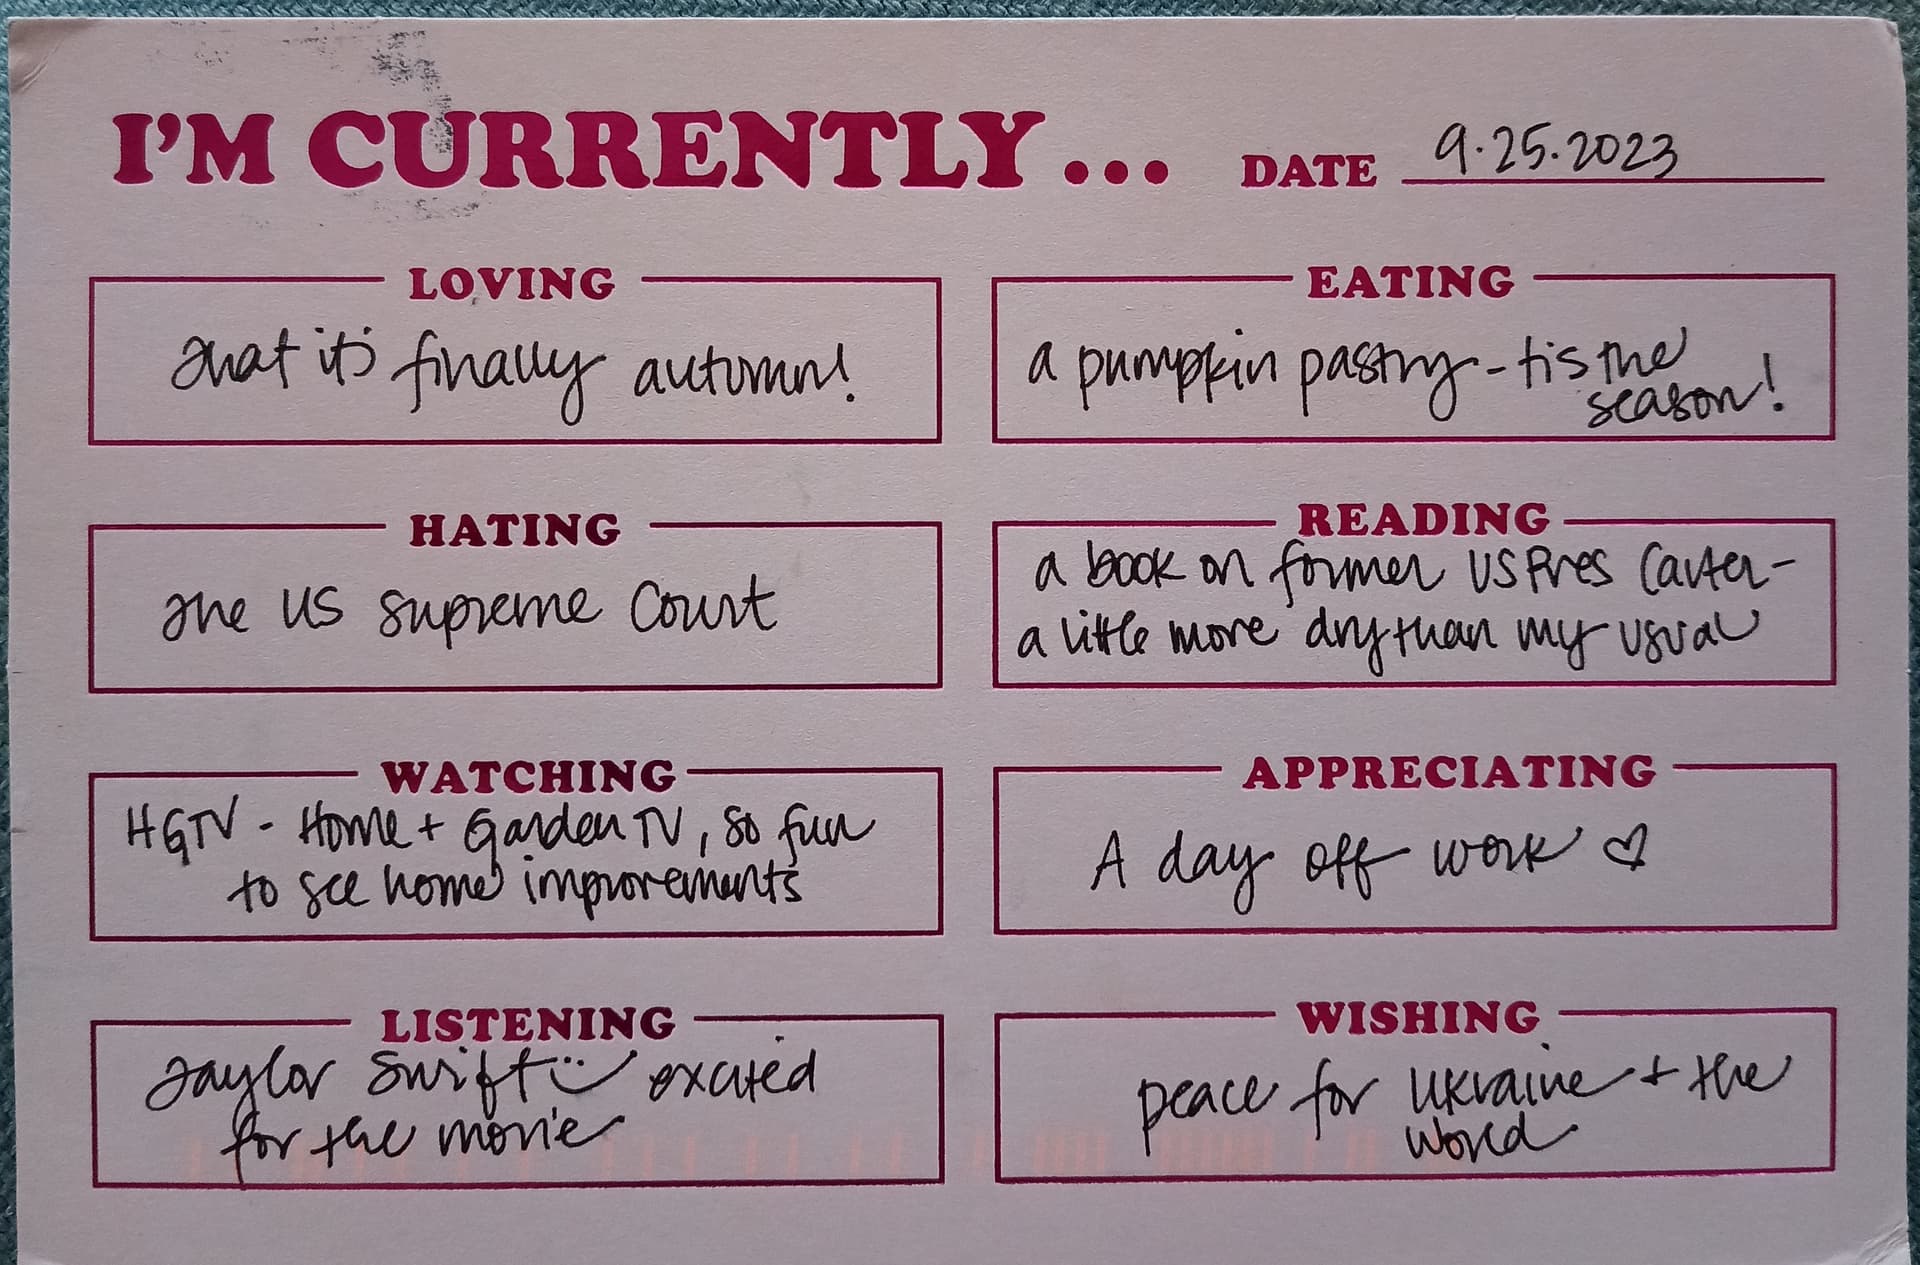 I'M CURRENTLY... DATE 9.25.2023
LOVING
that it's finally autumn!
EATING
a pumpkin pastry - tis the
season!
HATING
the US Supreme Court
READING
a book on former US Pres Carter -
a little more dry than my usual
WATCHING
HGTV - Home + Garden TV, so fun
to see home improvements
APPRECIATING
A day off work ♡
LISTENING
Taylor Swift :) excited
for the movie
WISHING
peace for Ukraine + the
World